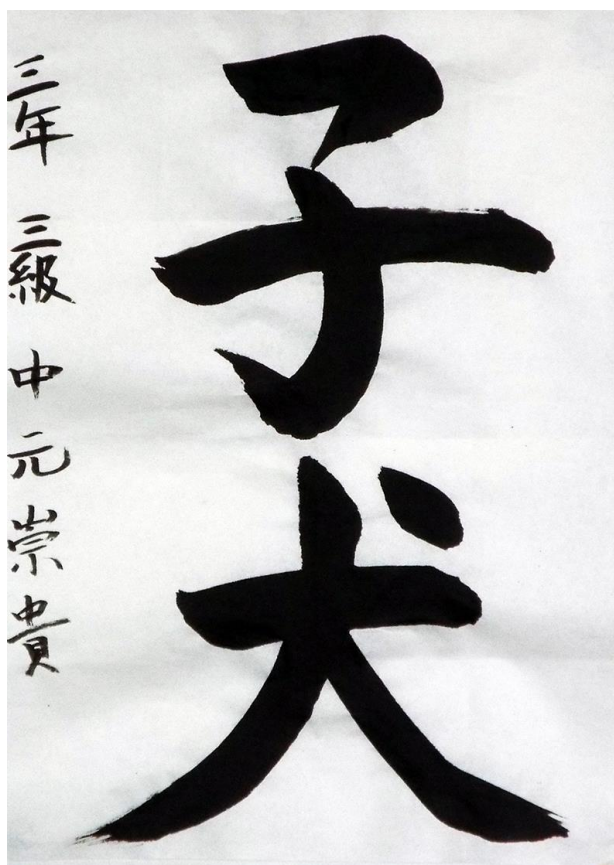 子犬
三年 三級 中元崇貴